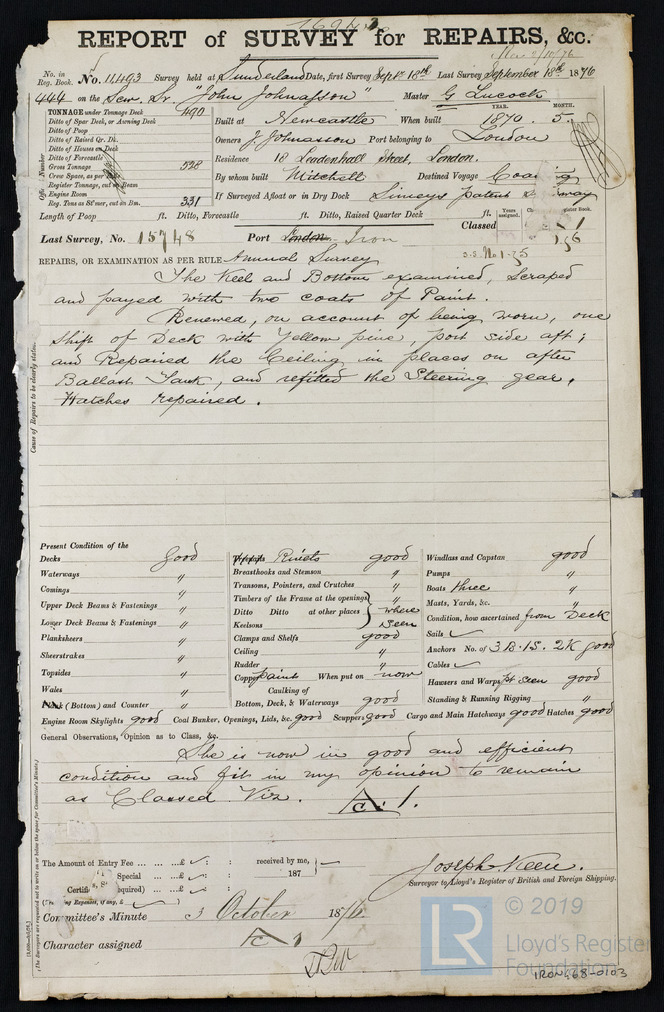 REPORT of SURVEY for REPAIRS, &c.
No. in Reg. Book. No. 11493 Survey held at Sunderland Date, first Survey Sept 18th Last Survey September 18th 1876
444 on the Scw. Sr. "John Johnasson" Master G Lucock
TONNAGE under Tonnage Deck 490
YEAR. MONTH.
Ditto of Spar Deck, or Awning Deck
Built at Newcastle When built 1870. 5.
Ditto of Poop
Ditto of Raised Qr. Dk.
Owners J. Johnasson Port belonging to London
Ditto of Houses on Deck
Ditto of Forecastle
Residence 18 Leadenhall Street, London.
Gross Tonnage 528
Crew Space, as per
By whom built Mitchell Destined Voyage
Register Tonnage, cut on Beam
Engine Room
If Surveyed Afloat or in Dry Dock patent
Reg. Tons as St'mer, cut on Bm. 331
Official Number
Length of Poop ft. Ditto, Forecastle ft. Ditto, Raised Quarter Deck ft.
Years assigned.
Classed
Last Survey, No. 15748 Port London Iron
S.S. No 1-75
REPAIRS, OR EXAMINATION AS PER RULE Annual Survey
The Keel and Bottom examined, scraped
and payed with two coats of Paint.
Renewed, on account of being worn, one
Shift of Deck with Yellow pine, port side aft;
and Repaired the Ceiling in places on after
Ballast Tank, and refitted the Steering gear,
Hatches repaired.
Cause of Repairs to be clearly stated.
Present Condition of the
Decks good
Waterways "
Comings "
Upper Deck Beams & Fastenings "
Lower Deck Beams & Fastenings "
Planksheers "
Sheerstrakes "
Topsides "
Wales "
(Bottom) and Counter "
Rivets good
Breasthooks and Stemson "
Transoms, Pointers, and Crutches "
Timbers of the Frame at the openings
Ditto Ditto at other places } where
Keelsons seen
Clamps and Shelfs good
Ceiling "
Rudder "
Copper paint When put on now
Caulking of
Bottom, Deck, & Waterways good
Windlass and Capstan good
Pumps "
Boats three "
Masts, Yards, &c. "
Condition, how ascertained from Deck
Sails ✓
Anchors No. of 3 B. 1 S. 2 K good
Cables ✓
Hawsers and Warps pt seen good
Standing & Running Rigging "
Engine Room Skylights good Coal Bunker, Openings, Lids, &c. good Scuppers good Cargo and Main Hatchways good Hatches good
General Observations, Opinion as to Class, &c.
She is now in good and efficient
condition and fit in my opinion to remain
as Classed Viz. A 1.
The Amount of Entry Fee ... £ received by me,
Special ... £ 187
Certif required) ... £
Joseph Keen.
Surveyor to Lloyd's Register of British and Foreign Shipping.
Committee's Minute 3 October 1876
Character assigned A 1
(The Surveyors are requested not to write on or below the space for Committee's Minute.)
LR © 2019
Lloyd's Register
Foundation
IRON468-0103